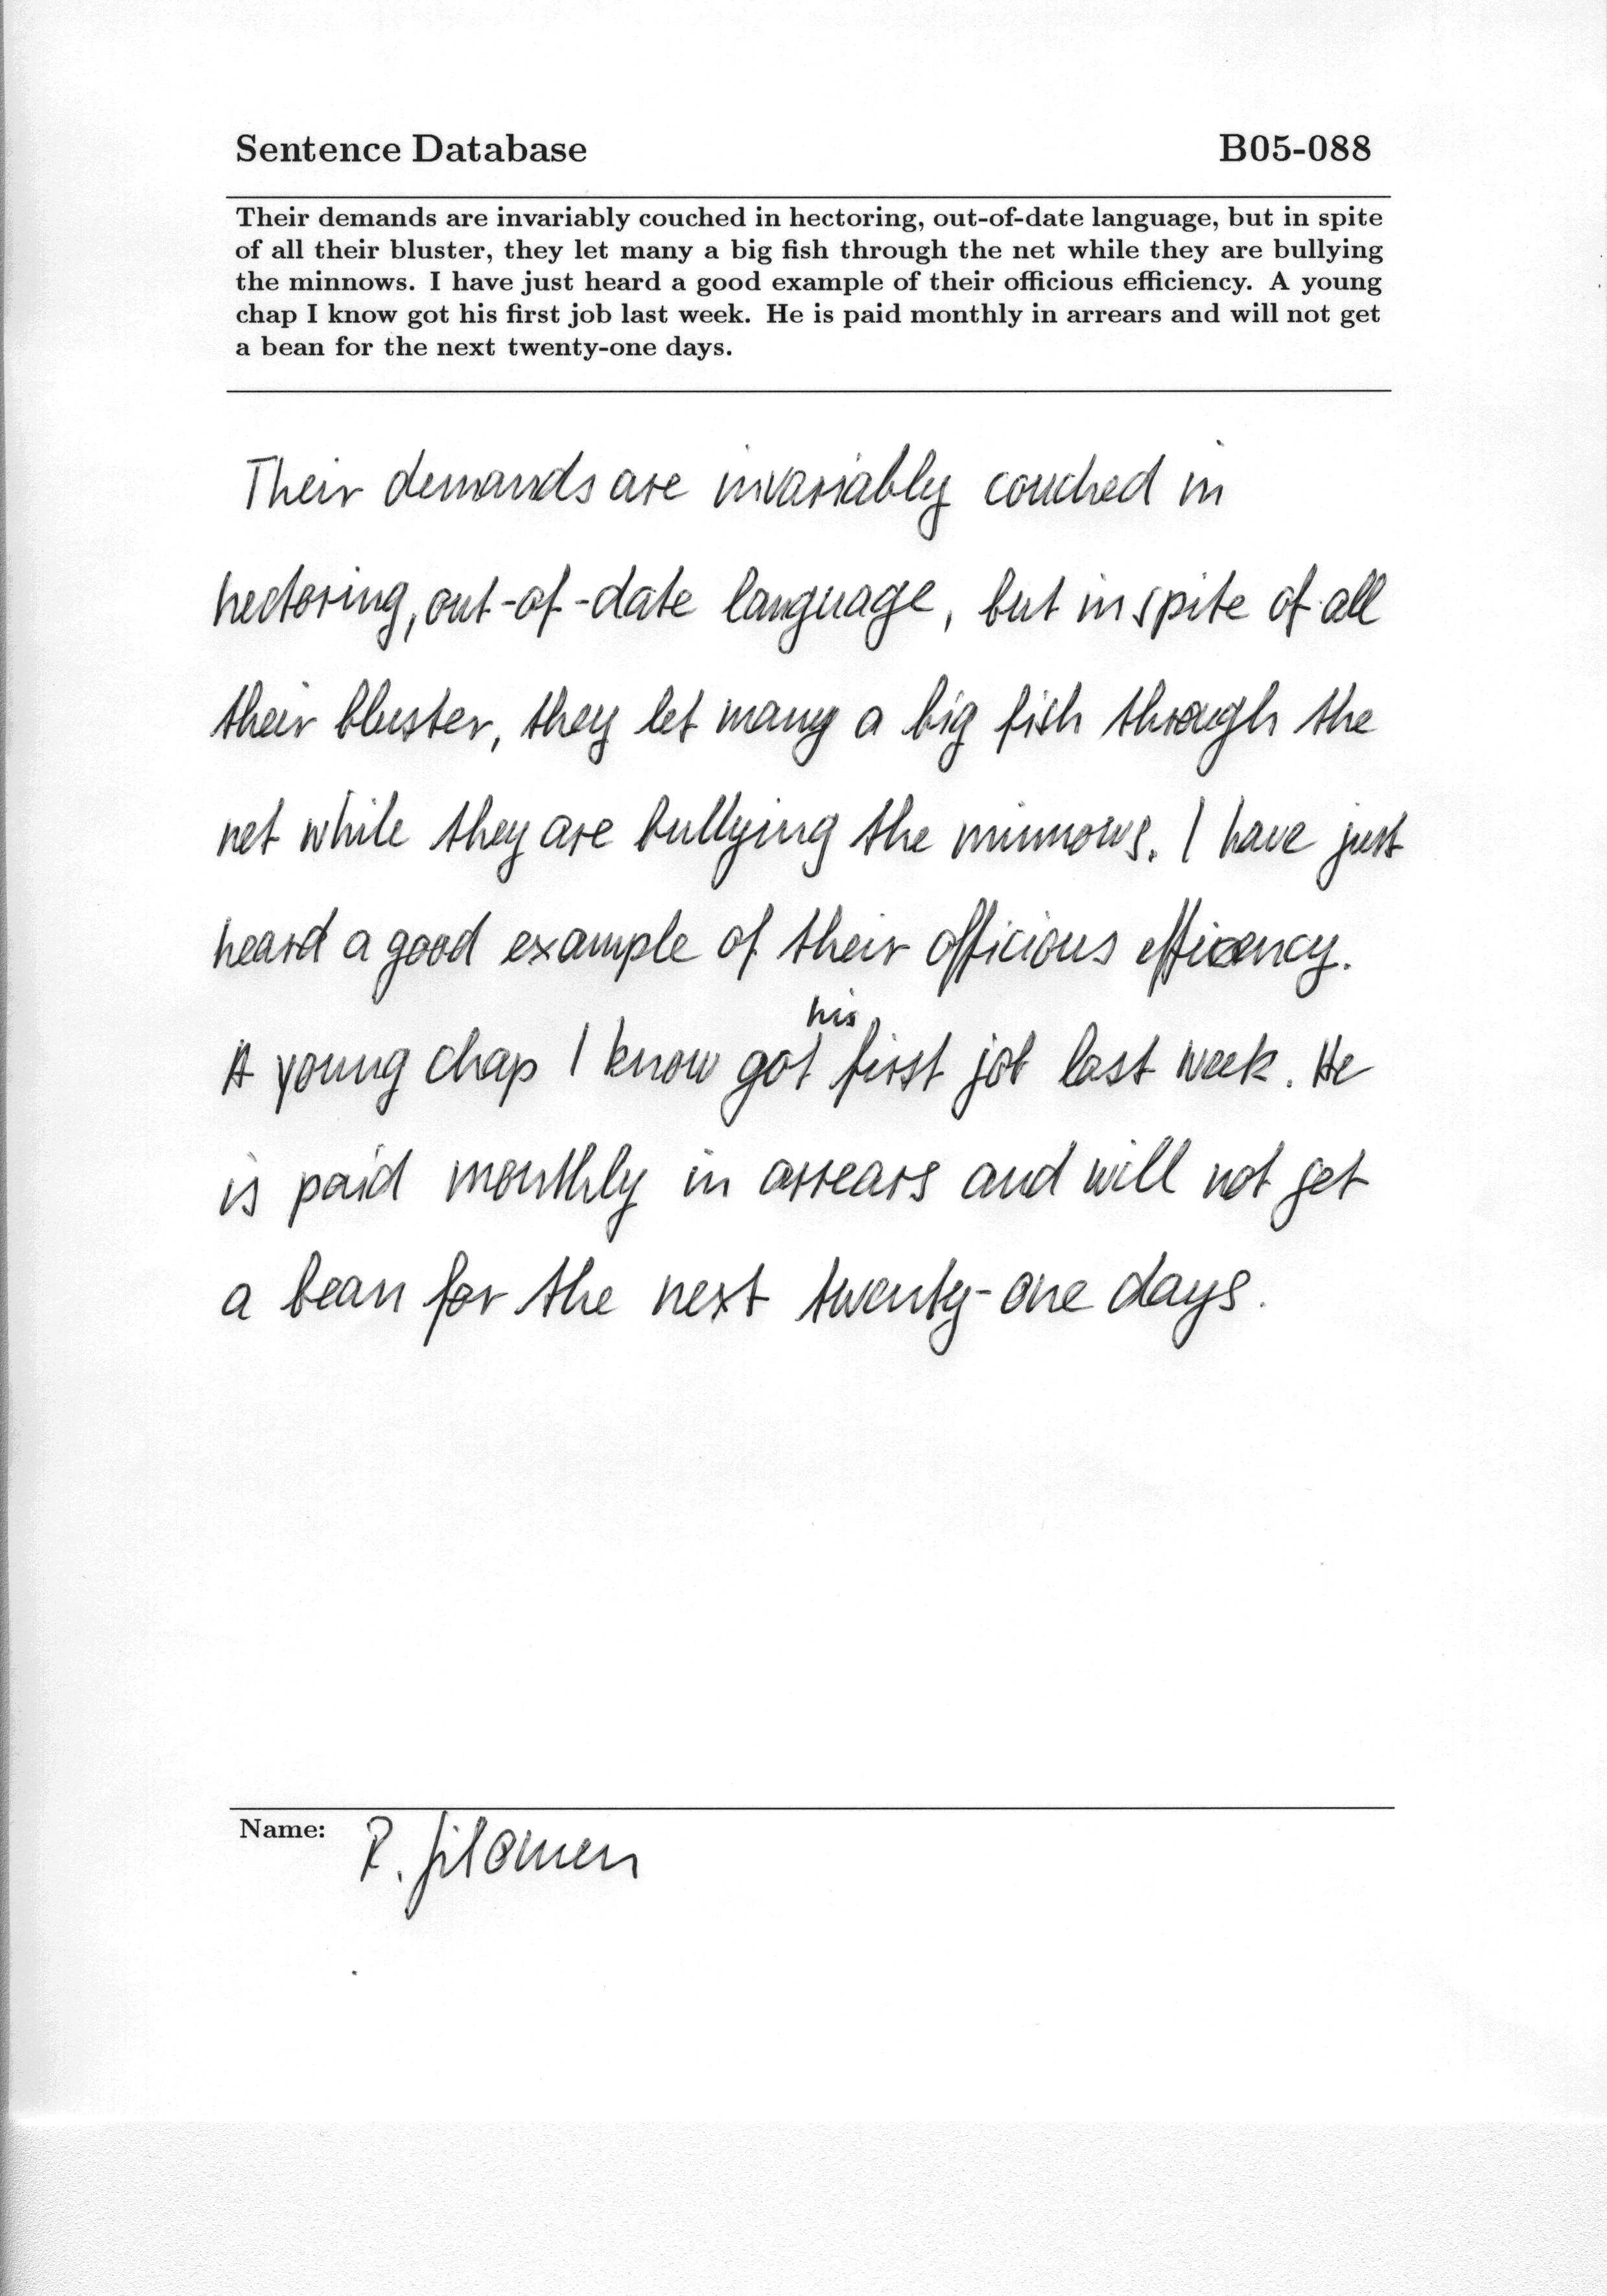 Sentence Database B05-088
Their demands are invariably couched in hectoring, out-of-date language, but in spite
of all their bluster, they let many a big fish through the net while they are bullying
the minnows. I have just heard a good example of their officious efficiency. A young
chap I know got his first job last week. He is paid monthly in arrears and will not get
a bean for the next twenty-one days.
Their demands are invariably couched in
hectoring, out-of-date language, but in spite of all
their bluster, they let many a big fish through the
net while they are bullying the minnows. I have just
heard a good example of their officious efficency.
A young chap I know got his first job last week. He
is paid monthly in arrears and will not get
a bean for the next twenty-one days.
Name: R.